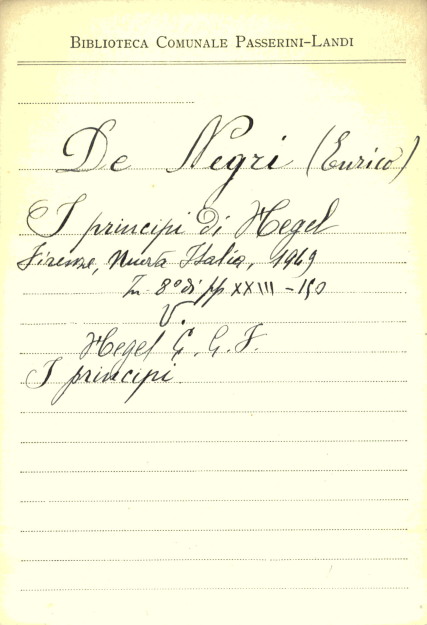 BIBLIOTECA COMUNALE PASSERINI-LANDI
De Negri (Enrico)
I principi di Hegel
Firenze, Nuova Italia, 1949
In 8° di pp XXIII - 150
V.
Hegel G. G. F.
I principi.